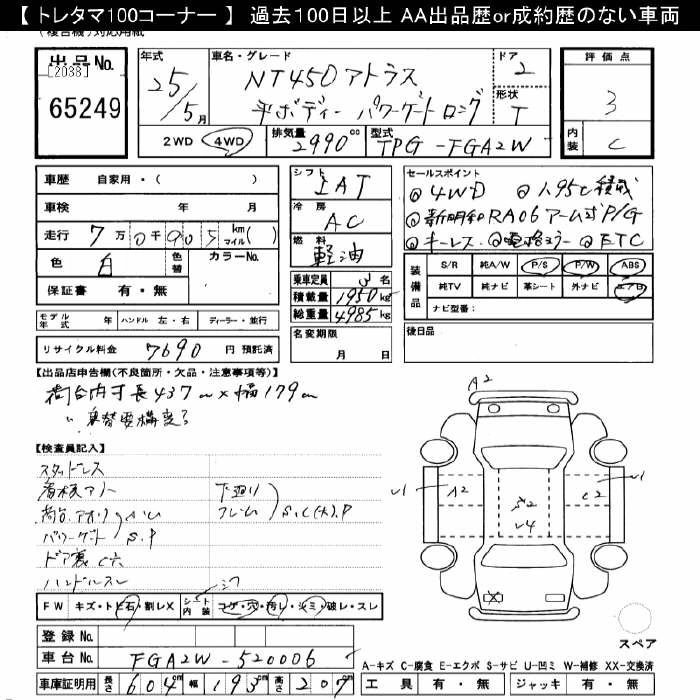 【 トレタマ100コーナー 】 過去100日以上 AA出品歴or成約歴のない車両
出品No.
[2038]
65249
年式
25/5月
車名・グレード
NT450アトラス
平ボディー パワーゲートロング
ドア
2
形状
T
評価点
3
内装
C
2WD 4WD
排気量
2990cc
型式
TPG-FGA2W
車歴 自家用・( )
車検 年 月
走行 7万0千905km マイル( )
色 白 色替 カラーNo.
保証書 有・無
モデル年式 年 ハンドル 左・右 ディーラー・並行
リサイクル料金 7690 円 預託済
シフト
IAT
冷房
AC
燃料
軽油
乗車定員 3名
積載量 1950kg
総重量 4985kg
名変期限
月 日
セールスポイント
◎4WD ◎1.95t積載
◎新明和RA06アーム式P/G
◎キーレス ◎電格ミラー ◎ETC
装備品
S/R 純A/W P/S P/W ABS
純TV 純ナビ 革シート 外ナビ エアB
ナビ型番:
後日品
【出品店申告欄(不良箇所・欠品・注意事項等)】
荷台内寸長437cm×幅179cm
【検査員記入】
スタッドレス
荷台アオリ
パワーゲート
S.P
下廻り
フレーム
S.C(大).P
ドア裏
ハンドルスレ
A2
U1
A2
C2
U1
FW キズ・トビ石・割レX シート内装 コゲ・穴・汚レ・シミ・破レ・スレ
登録No.
車台No. FGA2W-520006
車庫証明用 長さ 604m 幅 193m 高さ 207m
スペア
A-キズ C-腐食 E-エクボ S-サビ U-凹ミ W-補修 XX-交換済
工具 有・無 ジャッキ 有・無